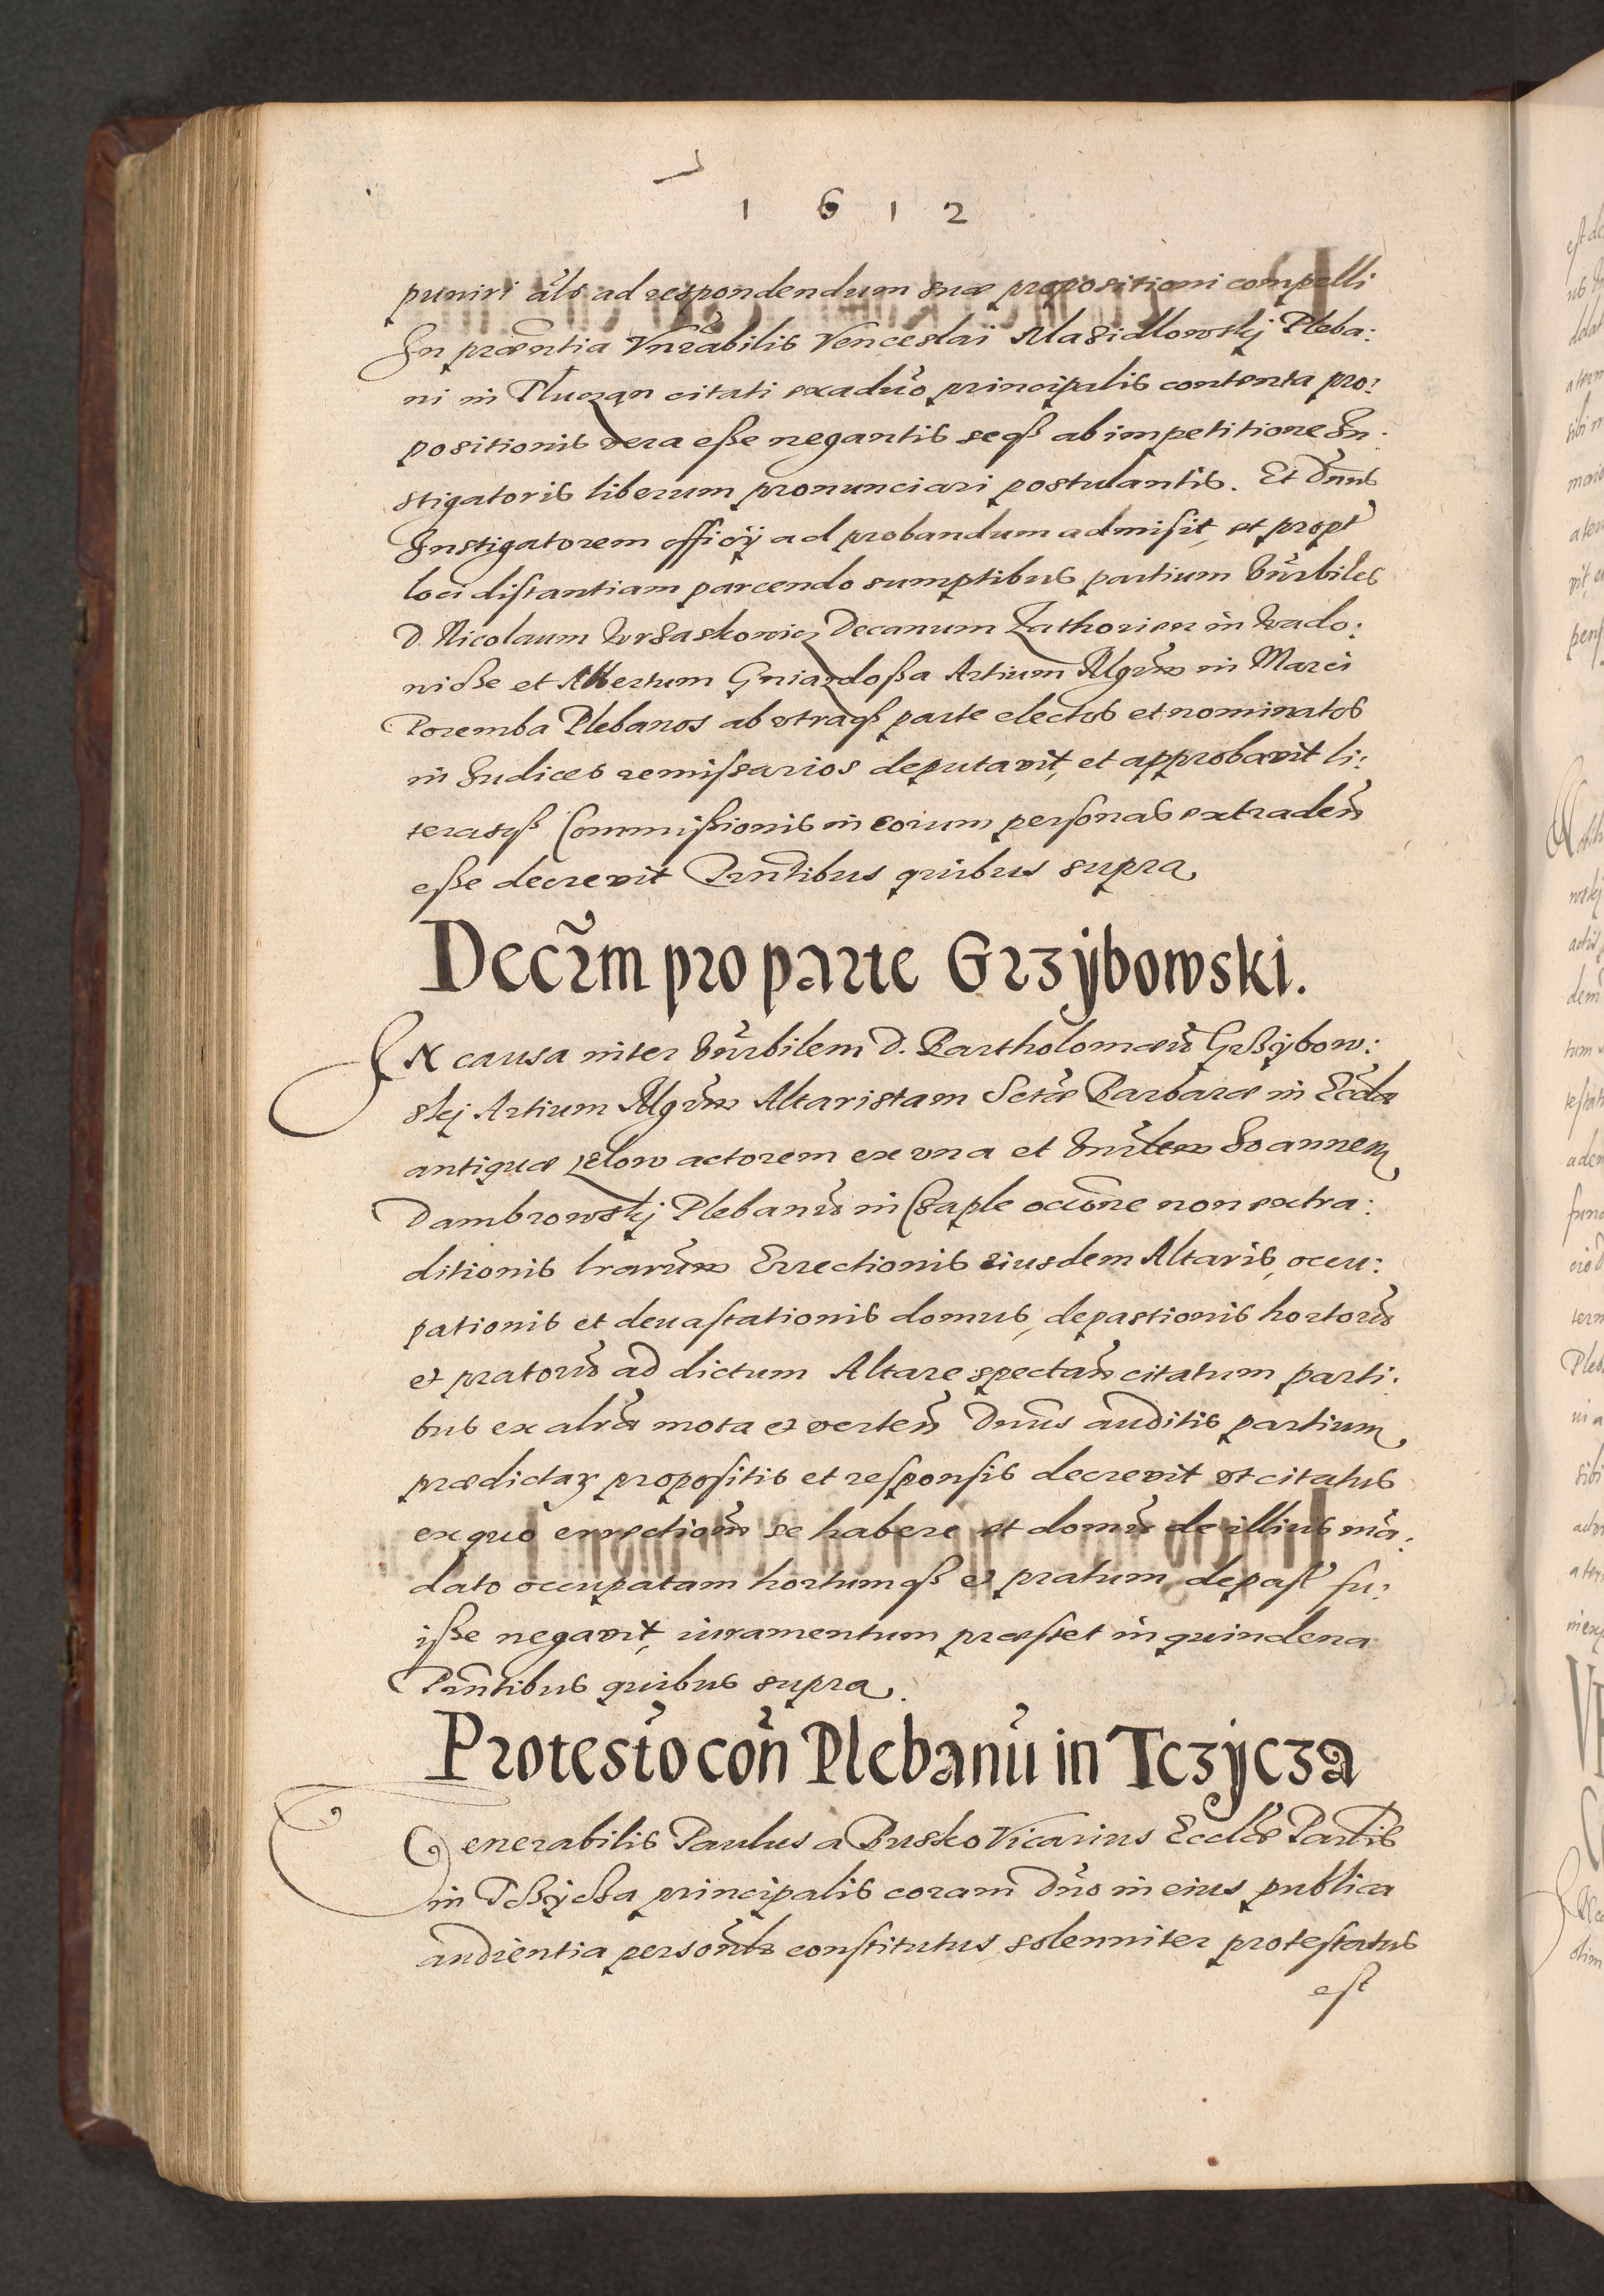 1 6 1 2
puniri als ad respondendum suæ propositioni compelli
In præntia Vnerabilis Venceslai Masidlowskj Pleba:
ni in citati ex aduo principalis contenta pro:
positionis vera esse negantis seqz ab impetitione In:
stigatoris liberum pronunciari postulantis. Et Dnus
Instigatorem officÿ ad probandum admisit, et propt
loci distantiam parcendo sumptibus partium Vnrbiles
D. Nicolaum Decanum Zathorien in Wado:
et Albertum Artium Mgrum in Marci
Poremba Plebanos ab vtraqz parte electos et nominatos
in Iudices remissarios deputavit, et approbavit li:
terasqz Commissionis in eorum personas extraden
esse decrevit Pnntibus quibus supra
Decrm pro parte Grzÿbowski.
IN causa inter Vnrbilem D. Bartholomæu Grzÿbow:
skj Artium Mgrum Altaristam Sctæ Barbaræ in Eccla
antiqua zelow actorem ex vna et Vnrlem Ioannem
Dambrowskj Plebanu in Czaple occione non extra:
ditionis lrarum Errectionis eiusdem Altaris, occu:
pationis et deuastationis domus, depastionis hortoru
et pratoru ad dictum Altare spectan citatum parti:
bus ex altra mota et verten Dnus auditis partium
prædictar propositis et responsis decrevit vt citatus
ex quo errectionem se habere et domu de illius ma:
dato occupatam hortumqz et pratum depast fu:
isse negavit, iuramentum præstet in quindena
Pnntibus quibus supra.
Protesto con Plebanu in Tczÿcza
Venerabilis Paulus a Busko Vicarius Ecclæ Parlis
in Tczÿcza principalis coram Dno in eius publica
audientia personlr constitutus, solenniter protestatus
est